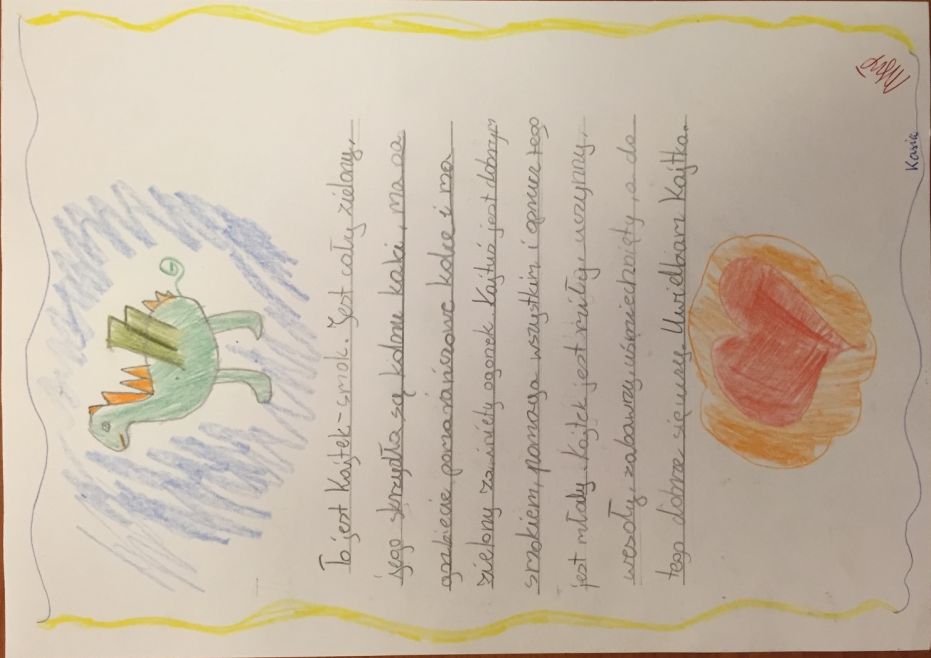 To jest Kajtek - smok. Jest cały zielony,
jego skrzydła są koloru kaki, ma na
grzbiecie pomarańczowe kolce i ma
zielony zawinięty ogonek. Kajtuś jest dobrym
smokiem, pomaga wszystkim i oprucz tego
jest młały. Kajtek jest miły, uczynny,
wesoły, zabawny, uśmiechnięty, a do
tego dobrze się uczy. Uwielbiam Kajtka.
Kasia